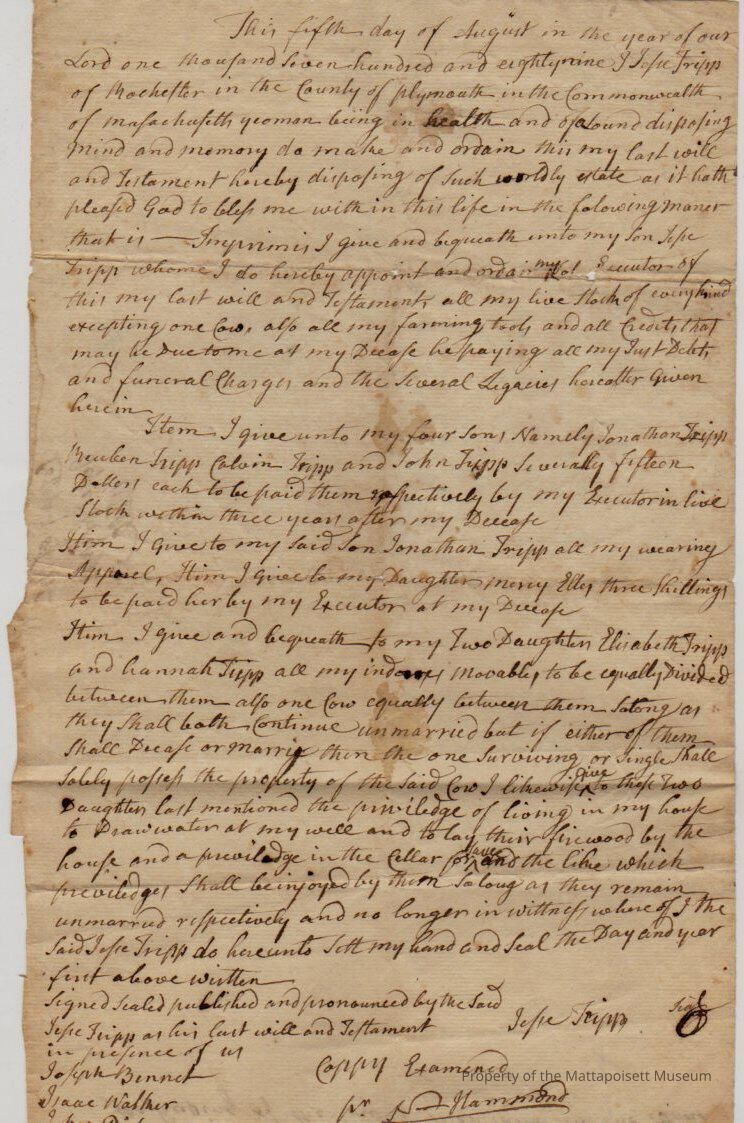 This fifth day of August in the year of our
Lord one thousand Seven hundred and eightynine I Jesse Tripp
of Rochester in the County of plymouth in the Commonwealth
of masachuseths yeoman being in health and of a sound disposing
mind and memory do make and ordain this my last will
and Testament hereby disposing of Such worldly estate as it hath
pleased God to bless me with in this life in the folowing maner
that is — Imprimis I give and bequeath unto my Son Jesse
Tripp whome I do hereby appoint and ordain my Executor of
this my last will and Testament, all my live Stock of every kind
excepting one Cow, also all my farming tools and all Credits that
may be Due to me at my Decease he paying all my Just Debts
and funeral Charges and the Several Legacies hereafter Given
herein
Item I give unto my four Sons Namely Jonathan Tripp
Reuben Tripp Calvin Tripp and John Tripp Severally fifteen
Dollers each to be paid them respectively by my Executor in live
Stock within three years after my Decease
Item I Give to my Said Son Jonathan Tripp all my wearing
Apparel, Item I Give to my Daughter mercy Elles three Shillings
to be paid her by my Executor at my Decease
Item I give and bequeath to my Two Daughters Elisabeth Tripp
and hannah Tripp all my indoors movables to be equally Divided
between them also one Cow equally between them Solong as
they Shall both Continue unmarried but if either of them
Shall Decease or marrie then the one Surviving or Single Shall
Solely posses the property of the Said Cow I likewise Give to these Two
Daughters last mentioned the priviledge of living in my house
to Draw water at my well and to lay their firewood by the
house and a priviledge in the Cellar for sauce and the like which
previledges Shall be injoyed by them Solong as they remain
unmarried respectively and no longer in wittness where of I the
Said Jesse Tripp do hereunto Sett my hand and Seal the Day and year
first above written
Signed Sealed published and pronounced by the Said
Jesse Tripp as his last will and Testament
Jesse Tripp Seal
in presence of us
Joseph Bennet
Coppy Examened
Property of the Mattapoisett Museum
Isaac Walker
pr N Hammond